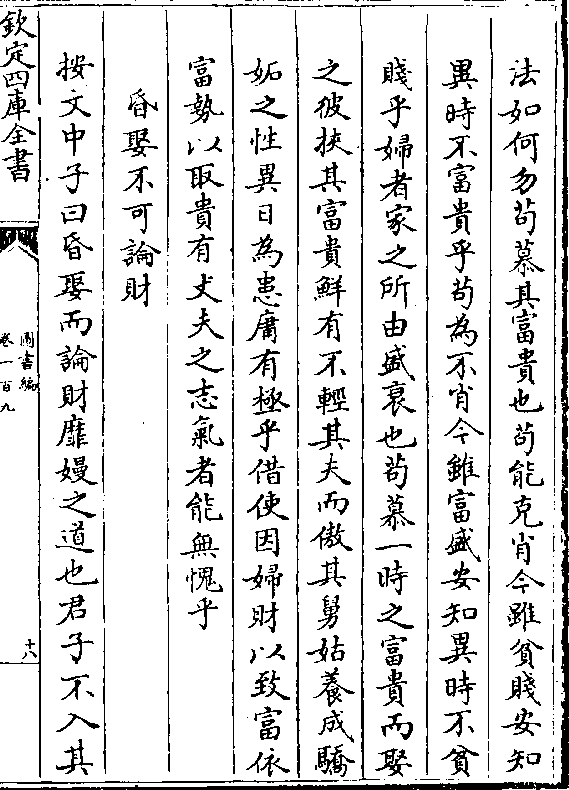 法如何勿苟慕其富貴也苟能克肖今雖貧賤安知
異時不富貴乎苟為不肖今雖富盛安知異時不貧
賤乎婦者家之所由盛衰也苟慕一時之富貴而娶
之彼挾其富貴鮮有不輕其夫而傲其舅姑養成驕
妬之性異日為患庸有極乎借使因婦財以致富依
富勢以取貴有丈夫之志氣者能無愧乎
昏娶不可論財
按文中子曰昏娶而論財靡嫚之道也君子不入其
欽定四庫全書
圖書編
卷一百九
十八